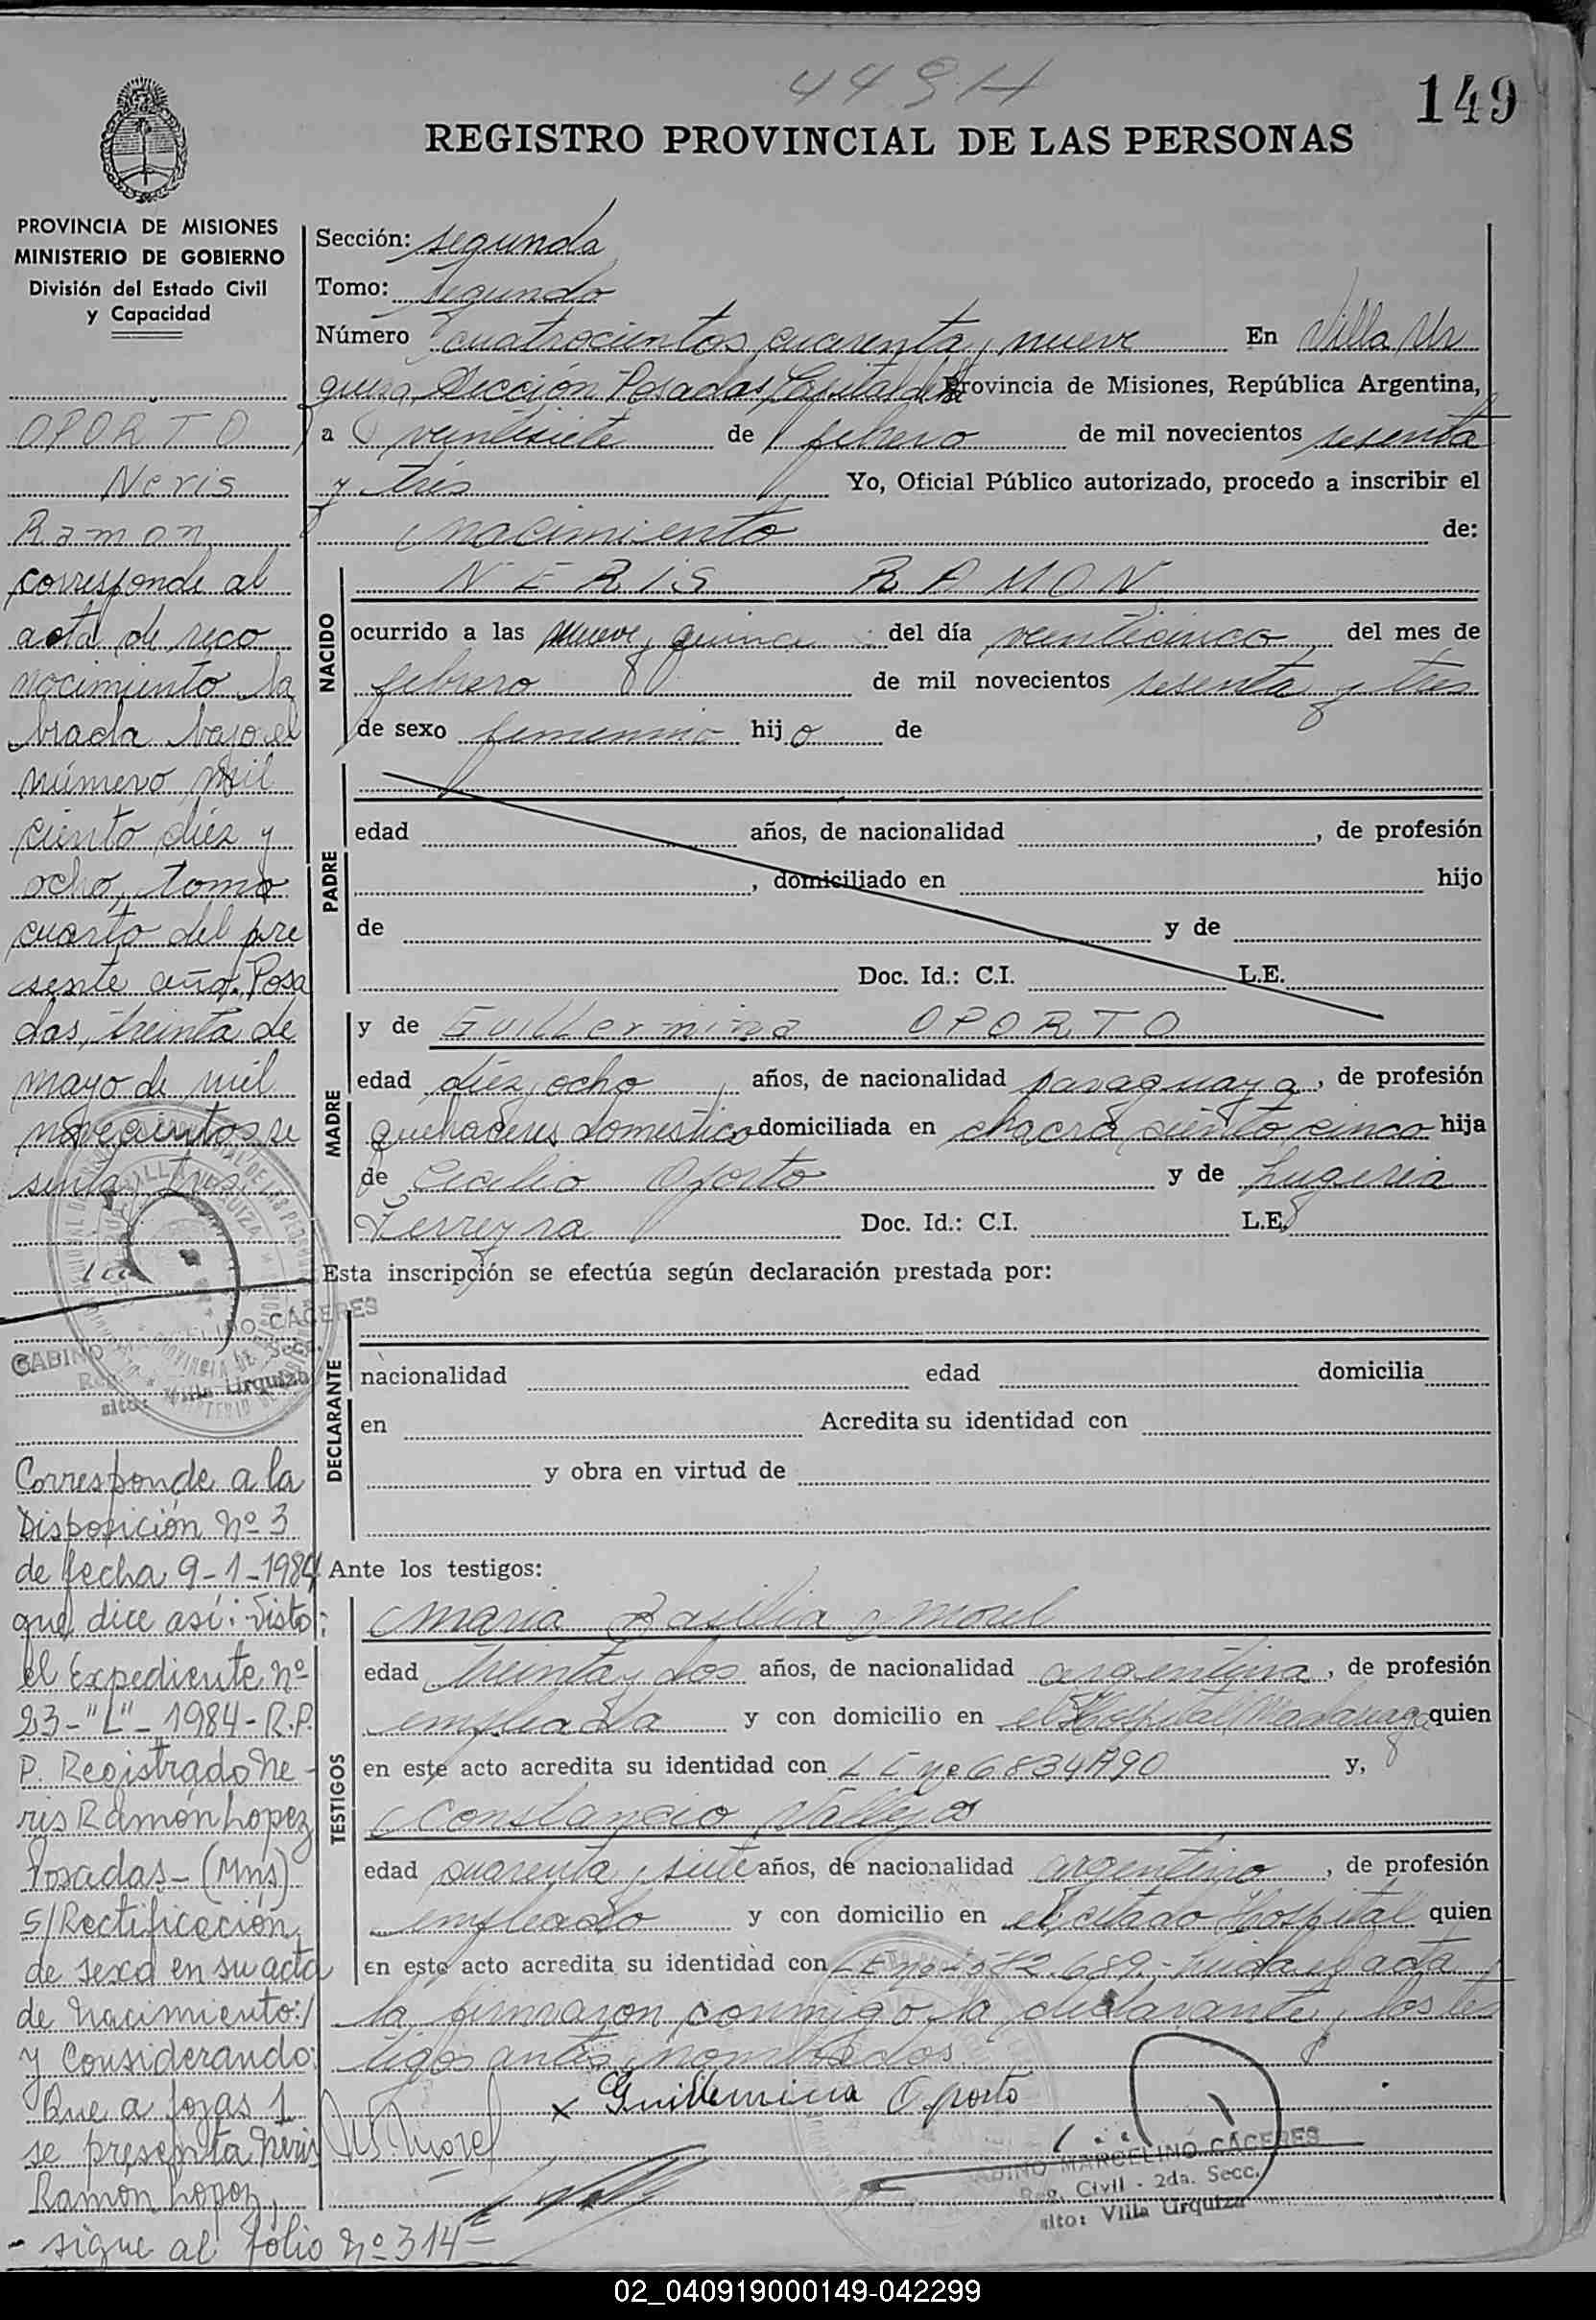 449H
149
REGISTRO PROVINCIAL DE LAS PERSONAS
PROVINCIA DE MISIONES
MINISTERIO DE GOBIERNO
División del Estado Civil
y Capacidad
OPORTO
Neris
Ramon
corresponde al
acta de reco
nocimiento la
brada bajo el
número mil
ciento diez y
ocho, tomo
cuarto del pre
sente año. Posa
das, treinta de
mayo de mil
novecientos se
senta y tres
GABINO MARCELINO CACERES
Villa Urquiza
Corresponde a la
Disposición Nº 3
de fecha 9-1-1984
que dice así: Visto:
el Expediente nº
23-"L"-1984-R.P.
P. Registrado Ne-
ris Ramón Lopez
Posadas-(Mns)
S/Rectificación
de sexo en su acta
de Nacimiento:/
y Considerando:
Que a fojas 1
se presenta Neris
Ramon Lopez,
- sigue al folio nº 314-
Sección: segunda
Tomo: segundo
Número cuatrocientos cuarenta y nueve En Villa Ur
quiza, Sección Posadas, Capital de la Provincia de Misiones, República Argentina,
a veintisiete de febrero de mil novecientos sesenta
y tres Yo, Oficial Público autorizado, procedo a inscribir el
nacimiento de:
NACIDO
NERIS RAMON
ocurrido a las nueve y quince del día veinticinco del mes de
febrero de mil novecientos sesenta y tres
de sexo femenino hijo de
PADRE
edad años, de nacionalidad , de profesión
, domiciliado en hijo
de y de
Doc. Id.: C.I. L.E.
MADRE
y de Guillermina OPORTO
edad diez y ocho años, de nacionalidad paraguaya, de profesión
quehaceres domestico domiciliada en chacra ciento cinco hija
de Cecilio Oporto y de Lugeria
Ferreyra Doc. Id.: C.I. L.E.
Esta inscripción se efectúa según declaración prestada por:
DECLARANTE
nacionalidad edad domicilia
en Acredita su identidad con
y obra en virtud de
Ante los testigos:
TESTIGOS
Maria Basilia Morel
edad treinta y dos años, de nacionalidad argentina, de profesión
empleada y con domicilio en el Hospital Madariaga quien
en este acto acredita su identidad con L E nº y,
Constancio Vallejos
edad cuarenta y siete años, de nacionalidad argentino, de profesión
empleado y con domicilio en el citado Hospital quien
en este acto acredita su identidad con L E nº leida el acta
la firmaron conmigo la declarante y los tes
tigos antes nombrados.
x Guillermina Oporto
M B Morel
GABINO MARCELINO CÁCERES
Reg. Civil - 2da. Secc.
Alto: Villa Urquiza
02_040919000149-042299